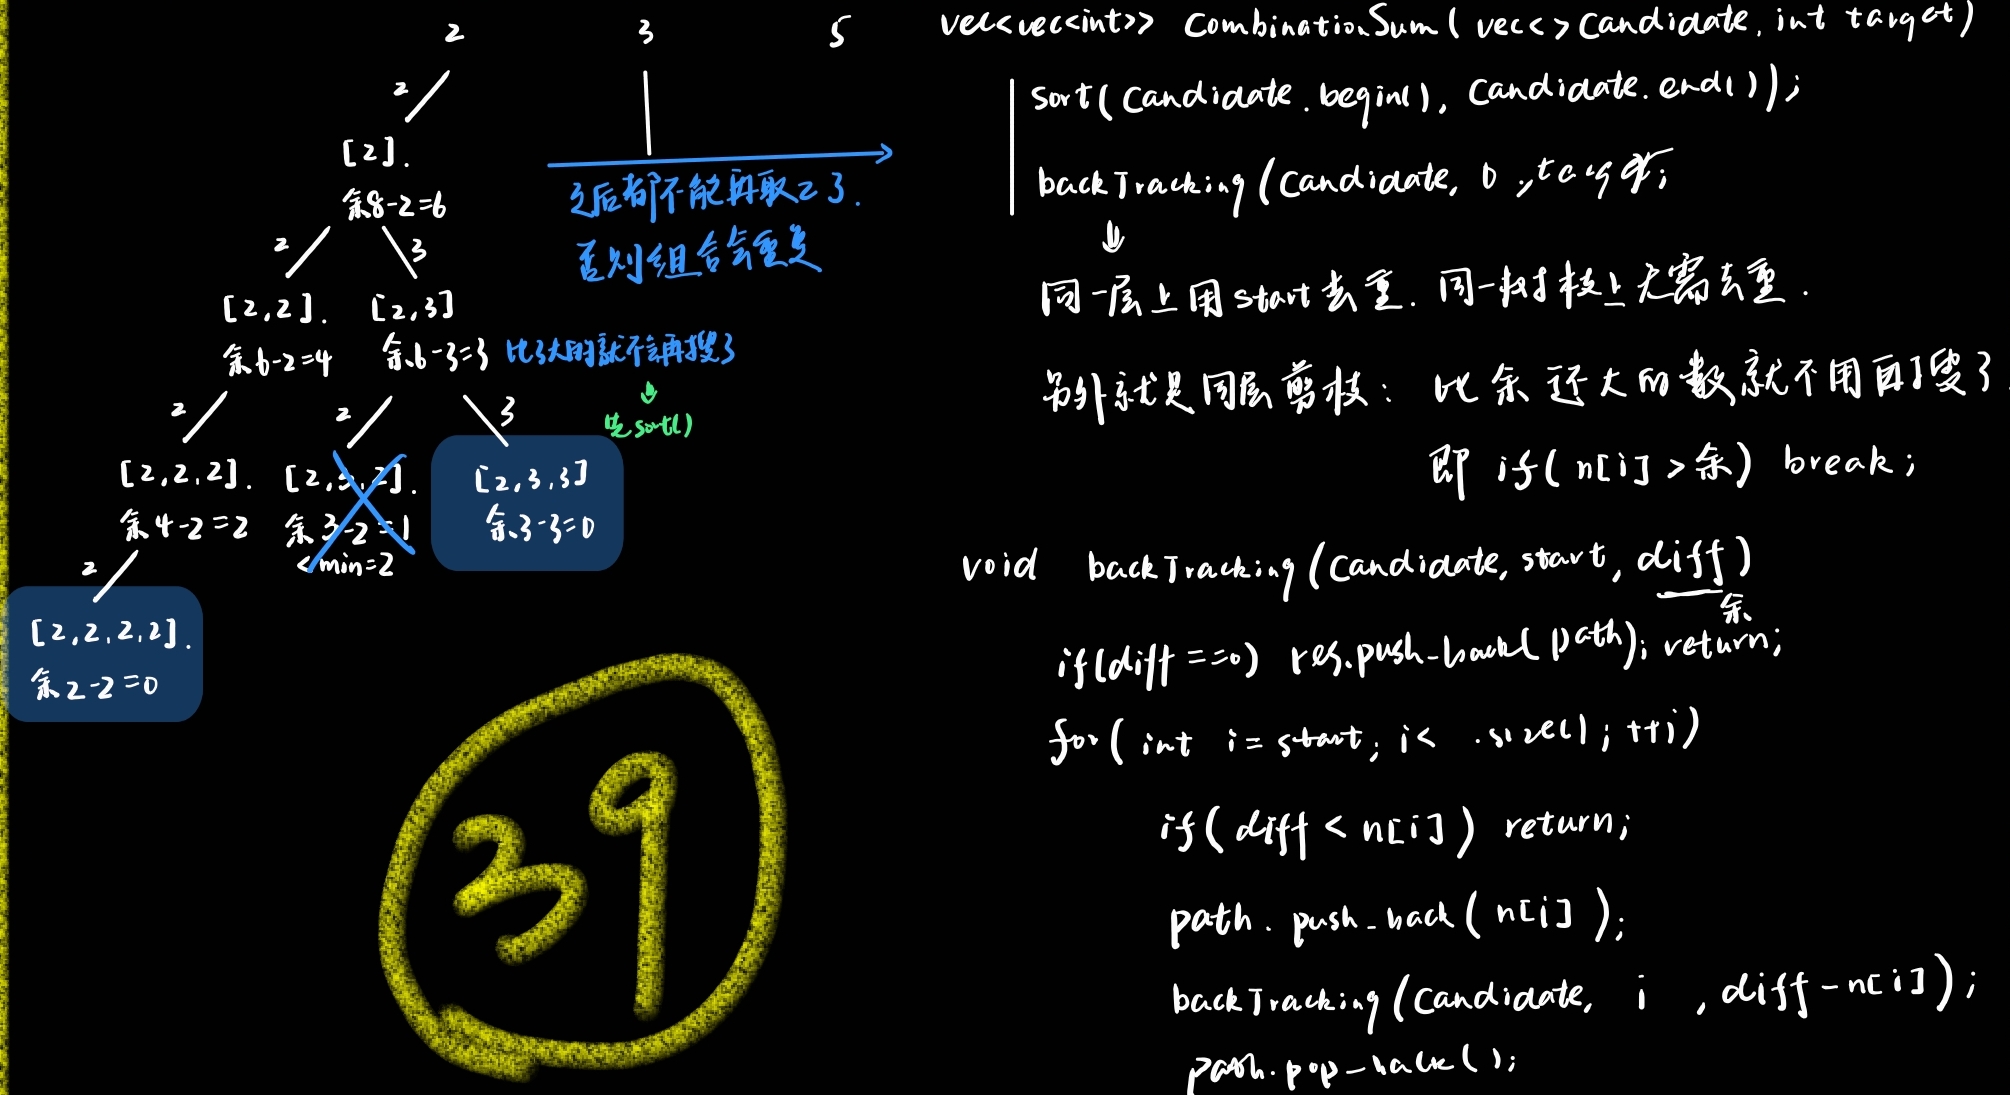 2 3 5
2
[2].
余8-2=6
2 3
[2,2]. [2,3]
余6-2=4 余6-3=3
2 2 3
[2,2,2]. [2,3,2]. [2,3,3]
余4-2=2 余3-2=1 余3-3=0
<min=2
2
[2,2,2,2].
余2-2=0
之后都不能再取2了.
否则组合会重复
比3大的就不会再搜了
先sort()
39
vec<vec<int>> CombinationSum(vec<>Candidate, int target)
sort(Candidate.begin(), Candidate.end());
backTracking(Candidate, 0, target;
同一层上用start去重. 同一树枝上无需去重.
另外就是同层剪枝: 比余还大的数就不用再搜了
即 if(n[i]>余) break;
void backTracking(Candidate, start, diff)
余
if(diff==0) res.push-back(path); return;
for(int i=start; i< .size(); ++i)
if(diff<n[i]) return;
path.push_back(n[i]);
backTracking(Candidate, i, diff-n[i]);
path.pop-back();